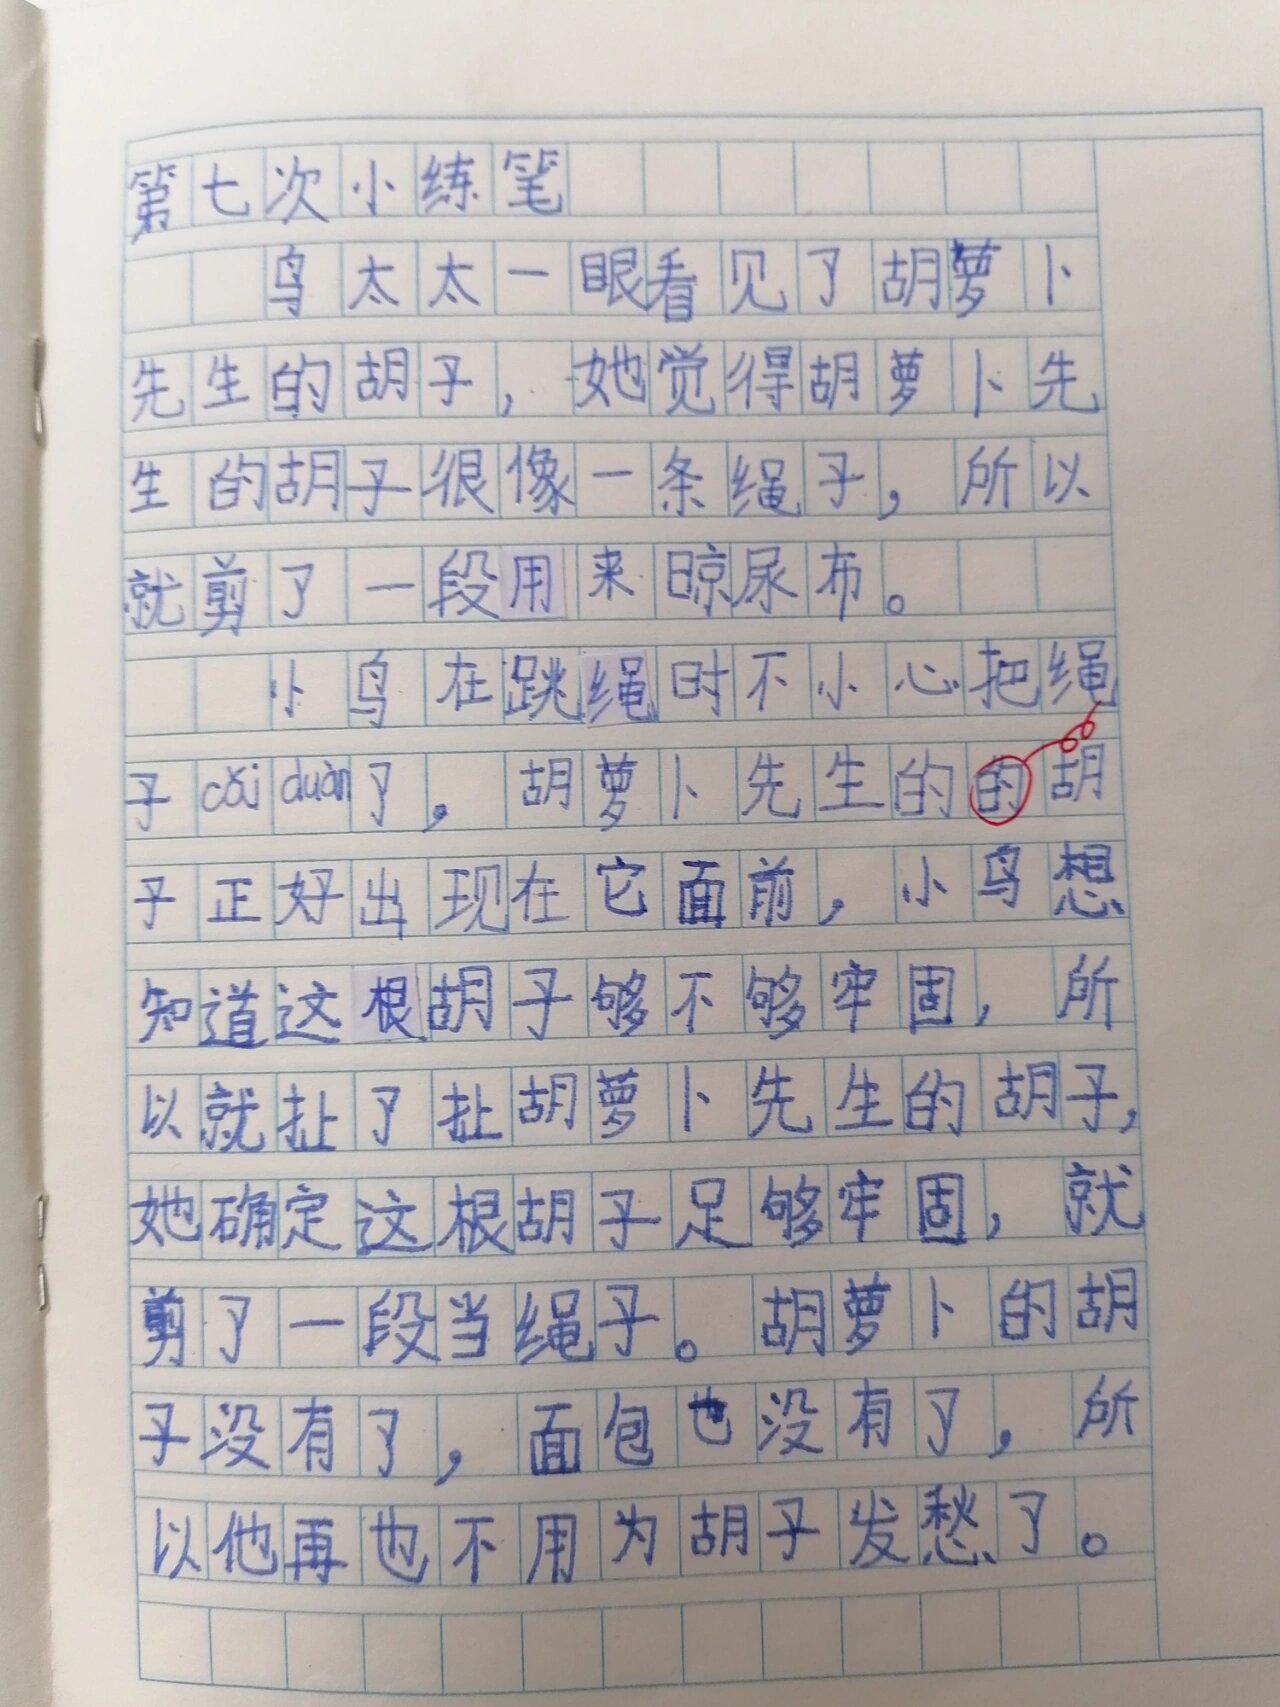 第七次小练笔
鸟太太一眼看见了胡萝卜
先生的胡子，她觉得胡萝卜先
生的胡子很像一条绳子，所以
就剪了一段用来晾尿布。
小鸟在跳绳时不小心把绳
子cǎi duàn了。胡萝卜先生的的胡
子正好出现在它面前，小鸟想
知道这根胡子够不够牢固，所
以就扯了扯胡萝卜先生的胡子，
她确定这根胡子足够牢固，就
剪了一段当绳子。胡萝卜的胡
子没有了，面包也没有了，所
以他再也不用为胡子发愁了。